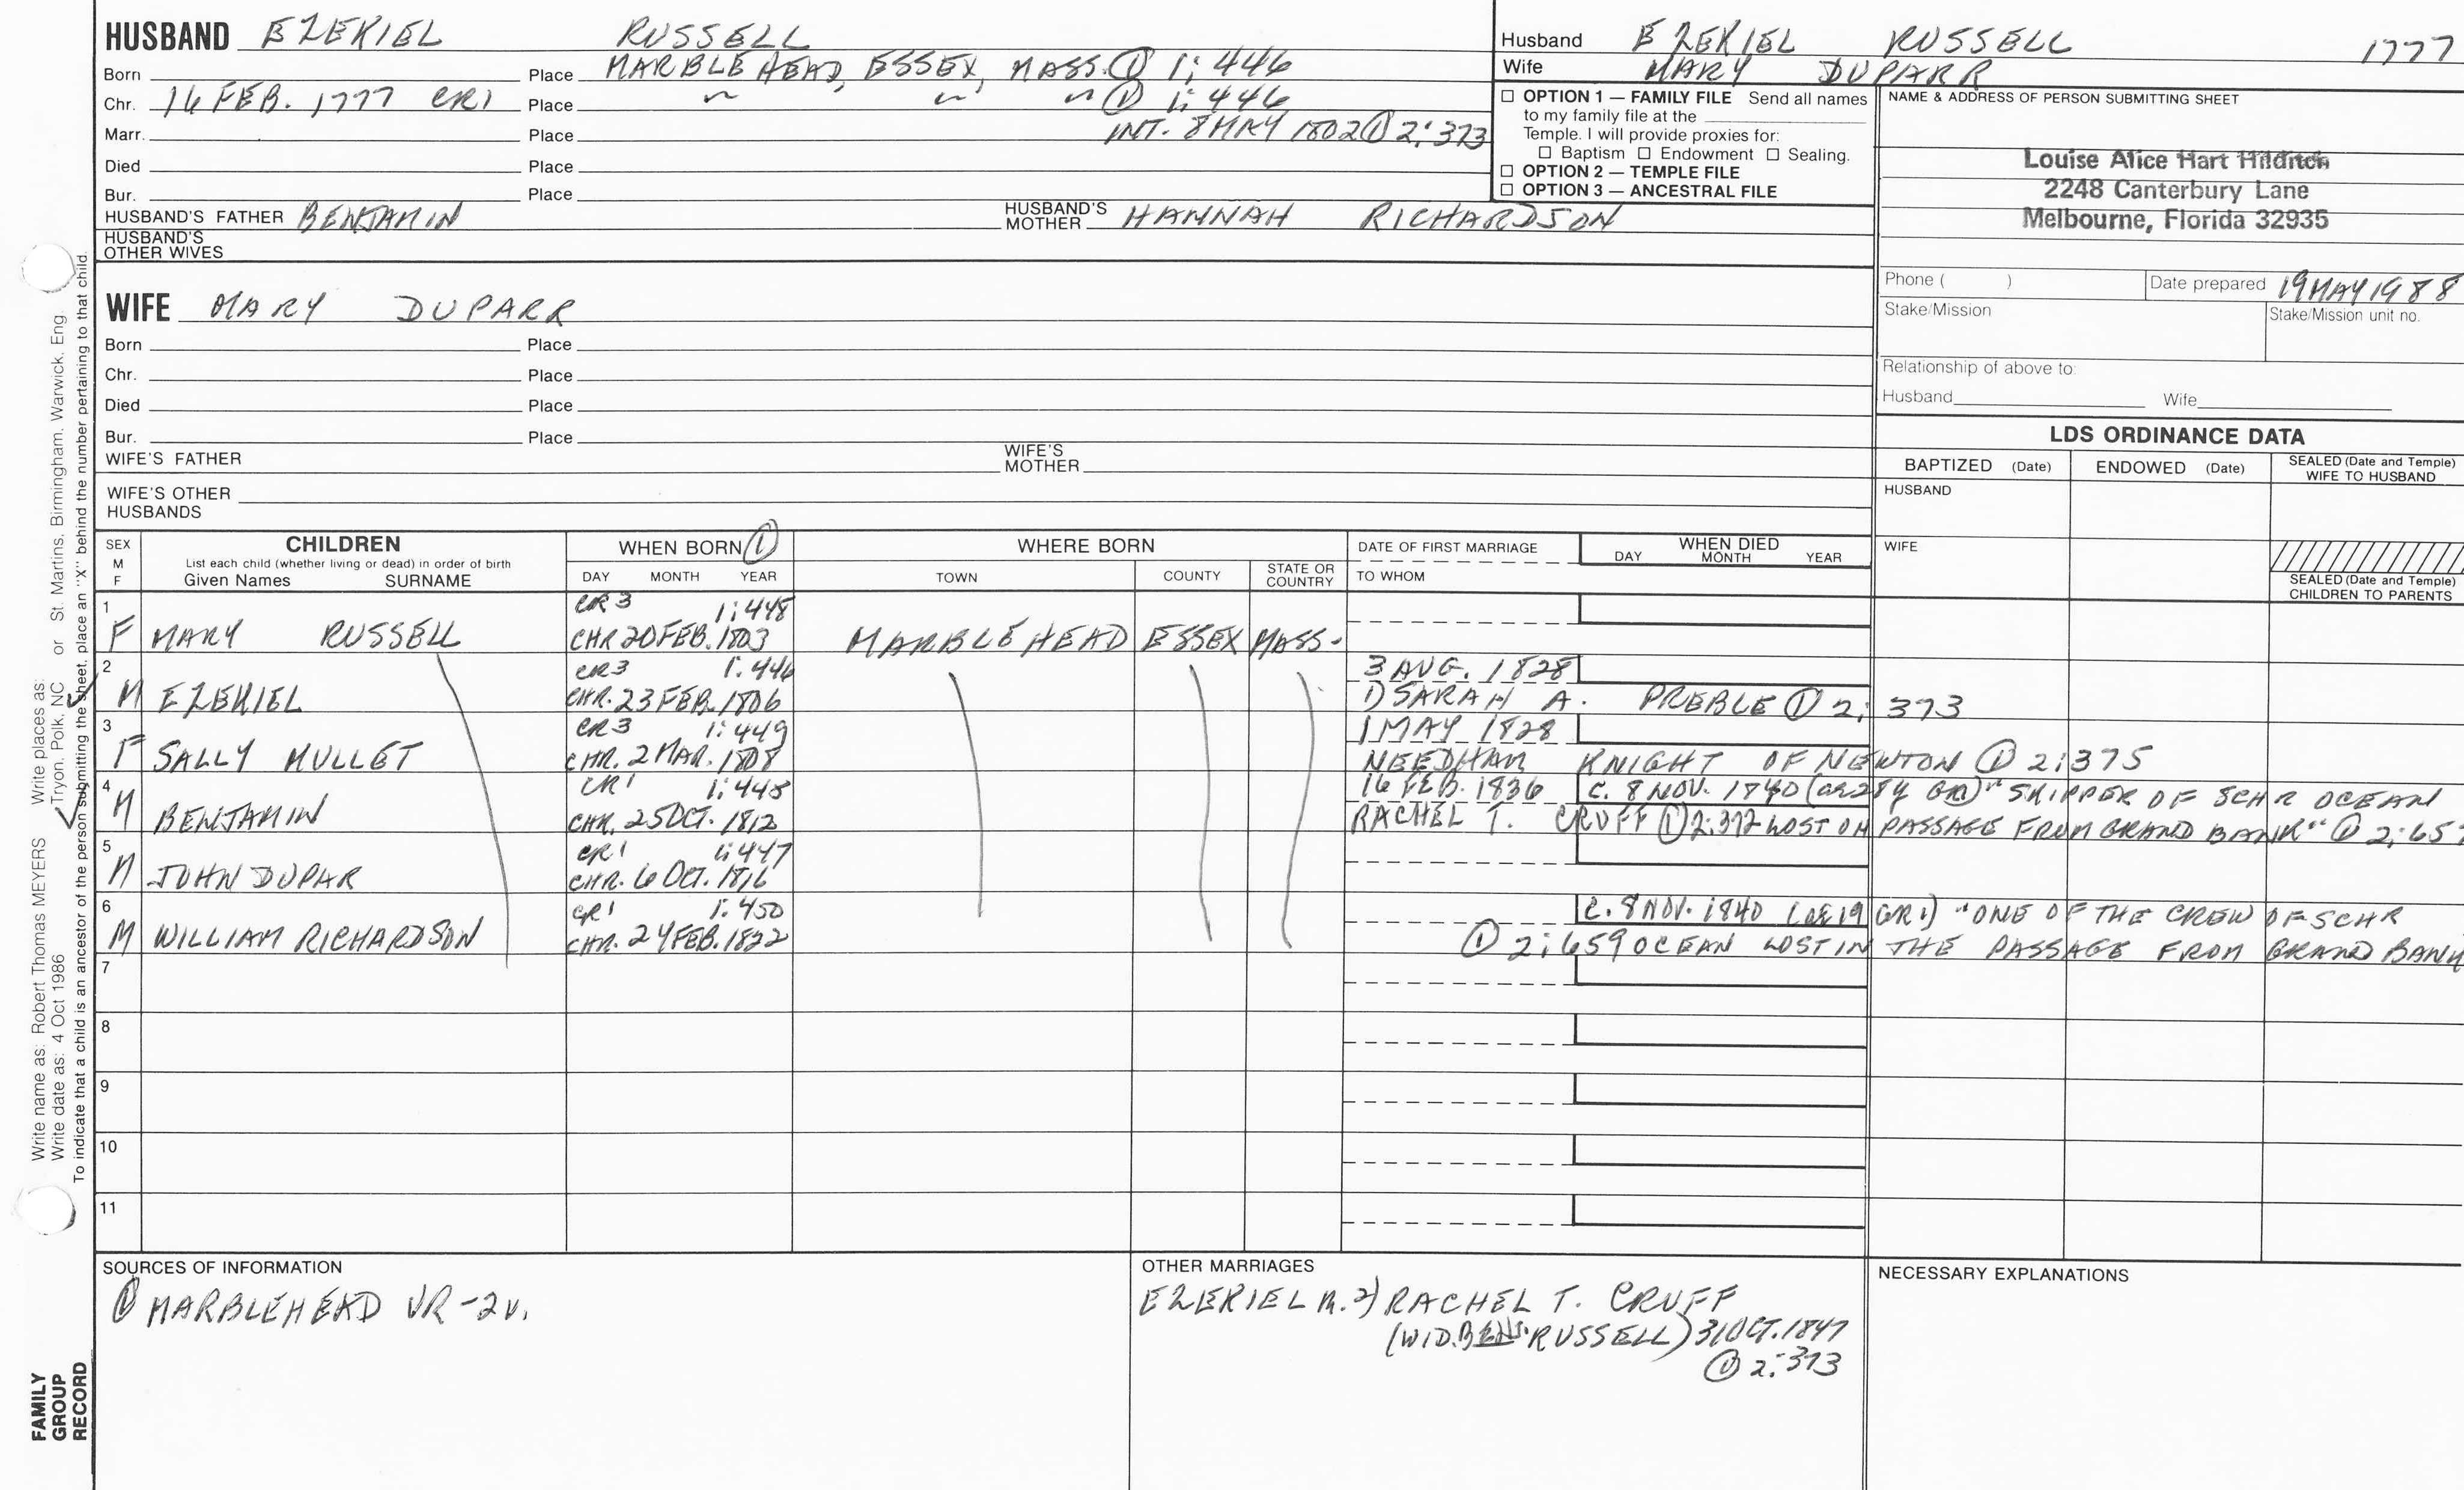 HUSBAND EZEKIEL RUSSELL
Born Place MARBLEHEAD, ESSEX, MASS. ① 1:446
Chr. 16 FEB. 1777 CR1 Place " " " ① 1:446
Marr. Place INT. 8 MAY 1802 ① 2:373
Died Place
Bur. Place
HUSBAND'S FATHER BENJAMIN HUSBAND'S MOTHER HANNAH RICHARDSON
HUSBAND'S OTHER WIVES
Husband EZEKIEL RUSSELL 1777
Wife MARY DUPARR
☐ OPTION 1 — FAMILY FILE Send all names
to my family file at the
Temple. I will provide proxies for:
☐ Baptism ☐ Endowment ☐ Sealing.
☐ OPTION 2 — TEMPLE FILE
☐ OPTION 3 — ANCESTRAL FILE
NAME & ADDRESS OF PERSON SUBMITTING SHEET
Louise Alice Hart Hilditch
2248 Canterbury Lane
Melbourne, Florida 32935
Phone ( ) Date prepared 19 MAY 1988
Stake/Mission Stake/Mission unit no.
Relationship of above to:
Husband Wife
WIFE MARY DUPARR
Born Place
Chr. Place
Died Place
Bur. Place
WIFE'S FATHER WIFE'S MOTHER
WIFE'S OTHER HUSBANDS
LDS ORDINANCE DATA
BAPTIZED (Date) ENDOWED (Date) SEALED (Date and Temple) WIFE TO HUSBAND
HUSBAND
WIFE
SEALED (Date and Temple) CHILDREN TO PARENTS
SEX M F CHILDREN WHEN BORN ① WHERE BORN DATE OF FIRST MARRIAGE WHEN DIED
List each child (whether living or dead) in order of birth
Given Names SURNAME DAY MONTH YEAR TOWN COUNTY STATE OR COUNTRY TO WHOM DAY MONTH YEAR
1 CR3 1:448
F MARY RUSSELL CHR 20 FEB. 1803 MARBLEHEAD ESSEX MASS-
2 CR3 1:446 3 AUG. 1828
M EZEKIEL CHR. 23 FEB. 1806 1) SARAH A. PREBLE ① 2:373
3 CR3 1:449 1 MAY 1828
F SALLY MULLET CHR. 2 MAR. 1808 NEEDHAM KNIGHT OF NEWTON ① 2:375
4 CR1 1:445 16 FEB. 1836 C. 8 NOV. 1840 "SKIPPER OF SCHR OCEAN
M BENJAMIN CHR. 25 OCT. 1812 RACHEL T. CRUFF ① 2:372 LOST ON PASSAGE FROM GRAND BANK" ① 2:657
5 CR1 1:447
M JOHN DUPAR CHR. 6 OCT. 1816
6 CR1 1:450 C. 8 NOV. 1840 (AE 19 GR1) "ONE OF THE CREW OF SCHR
M WILLIAM RICHARDSON CHR. 24 FEB. 1822 ① 2:659 OCEAN LOST IN THE PASSAGE FROM GRAND BANK
7
8
9
10
11
SOURCES OF INFORMATION
① MARBLEHEAD VR-2v.
OTHER MARRIAGES
EZEKIEL M. 2) RACHEL T. CRUFF
(WID. BENJ. RUSSELL) 31 OCT. 1847
① 2:373
NECESSARY EXPLANATIONS
Write name as: Robert Thomas MEYERS Write places as: Tryon, Polk, NC or St. Martins, Birmingham, Warwick, Eng.
Write date as: 4 Oct 1986
To indicate that a child is an ancestor of the person submitting the sheet, place an "X" behind the number pertaining to that child.
FAMILY
GROUP
RECORD